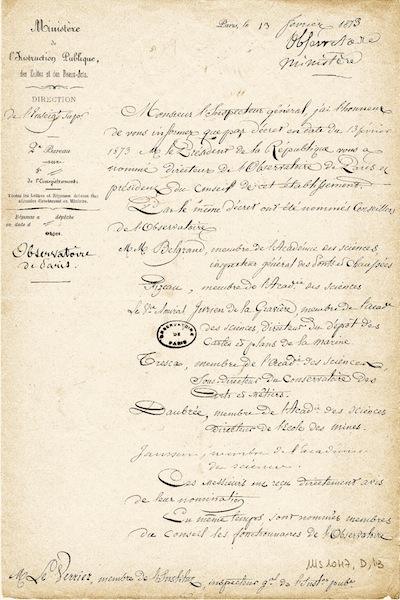 Ministère
de
l'Instruction Publique,
des Cultes et des Beaux-Arts.
DIRECTION
de l'Enseigt Supr
2e Bureau
No
de l'Enregistrement.
Toutes les Lettres et Réponses doivent être
adressées directement au Ministre.
Réponse à dépêche
en date d
OBJET.
Observatoire
de Paris.
Paris, le 13 février 1873
Observatoire
Ministère
Monsieur l'Inspecteur général, j'ai l'honneur
de vous informer que par décret en date du février
1873 Mr le Président de la République vous a
nommé directeur de l'Observatoire de Paris et
président du Conseil de cet établissement.
Par le même décret ont été nommés Conseillers
de l'Observatoire
M.M. Belgrand, membre de l'Académie des sciences
inspecteur général des Ponts et Chaussées
Fizeau, membre de l'Acadie des sciences
Le Vice Amiral Jurien de la Gravière, membre de l'acadie
des sciences directeur du dépôt des
Cartes et plans de la marine
OBSERVATOIRE
DE
PARIS
Tresca, membre de l'Acadie des sciences
Sous-directeur du Conservatoire des
Arts et Métiers.
Daubrée, membre de l'Acadie des sciences
directeur de l'école des mines.
Janssen, membre de l'académie
des sciences.
Ces Messieurs ont reçu directement avis
de leur nomination
En même temps sont nommés membres
du Conseil les fonctionnaires de l'Observatoire
Ms 1047, D, 13
Mr Le Verrier, membre de l'Institut, inspecteur gal de l'Instron pube.